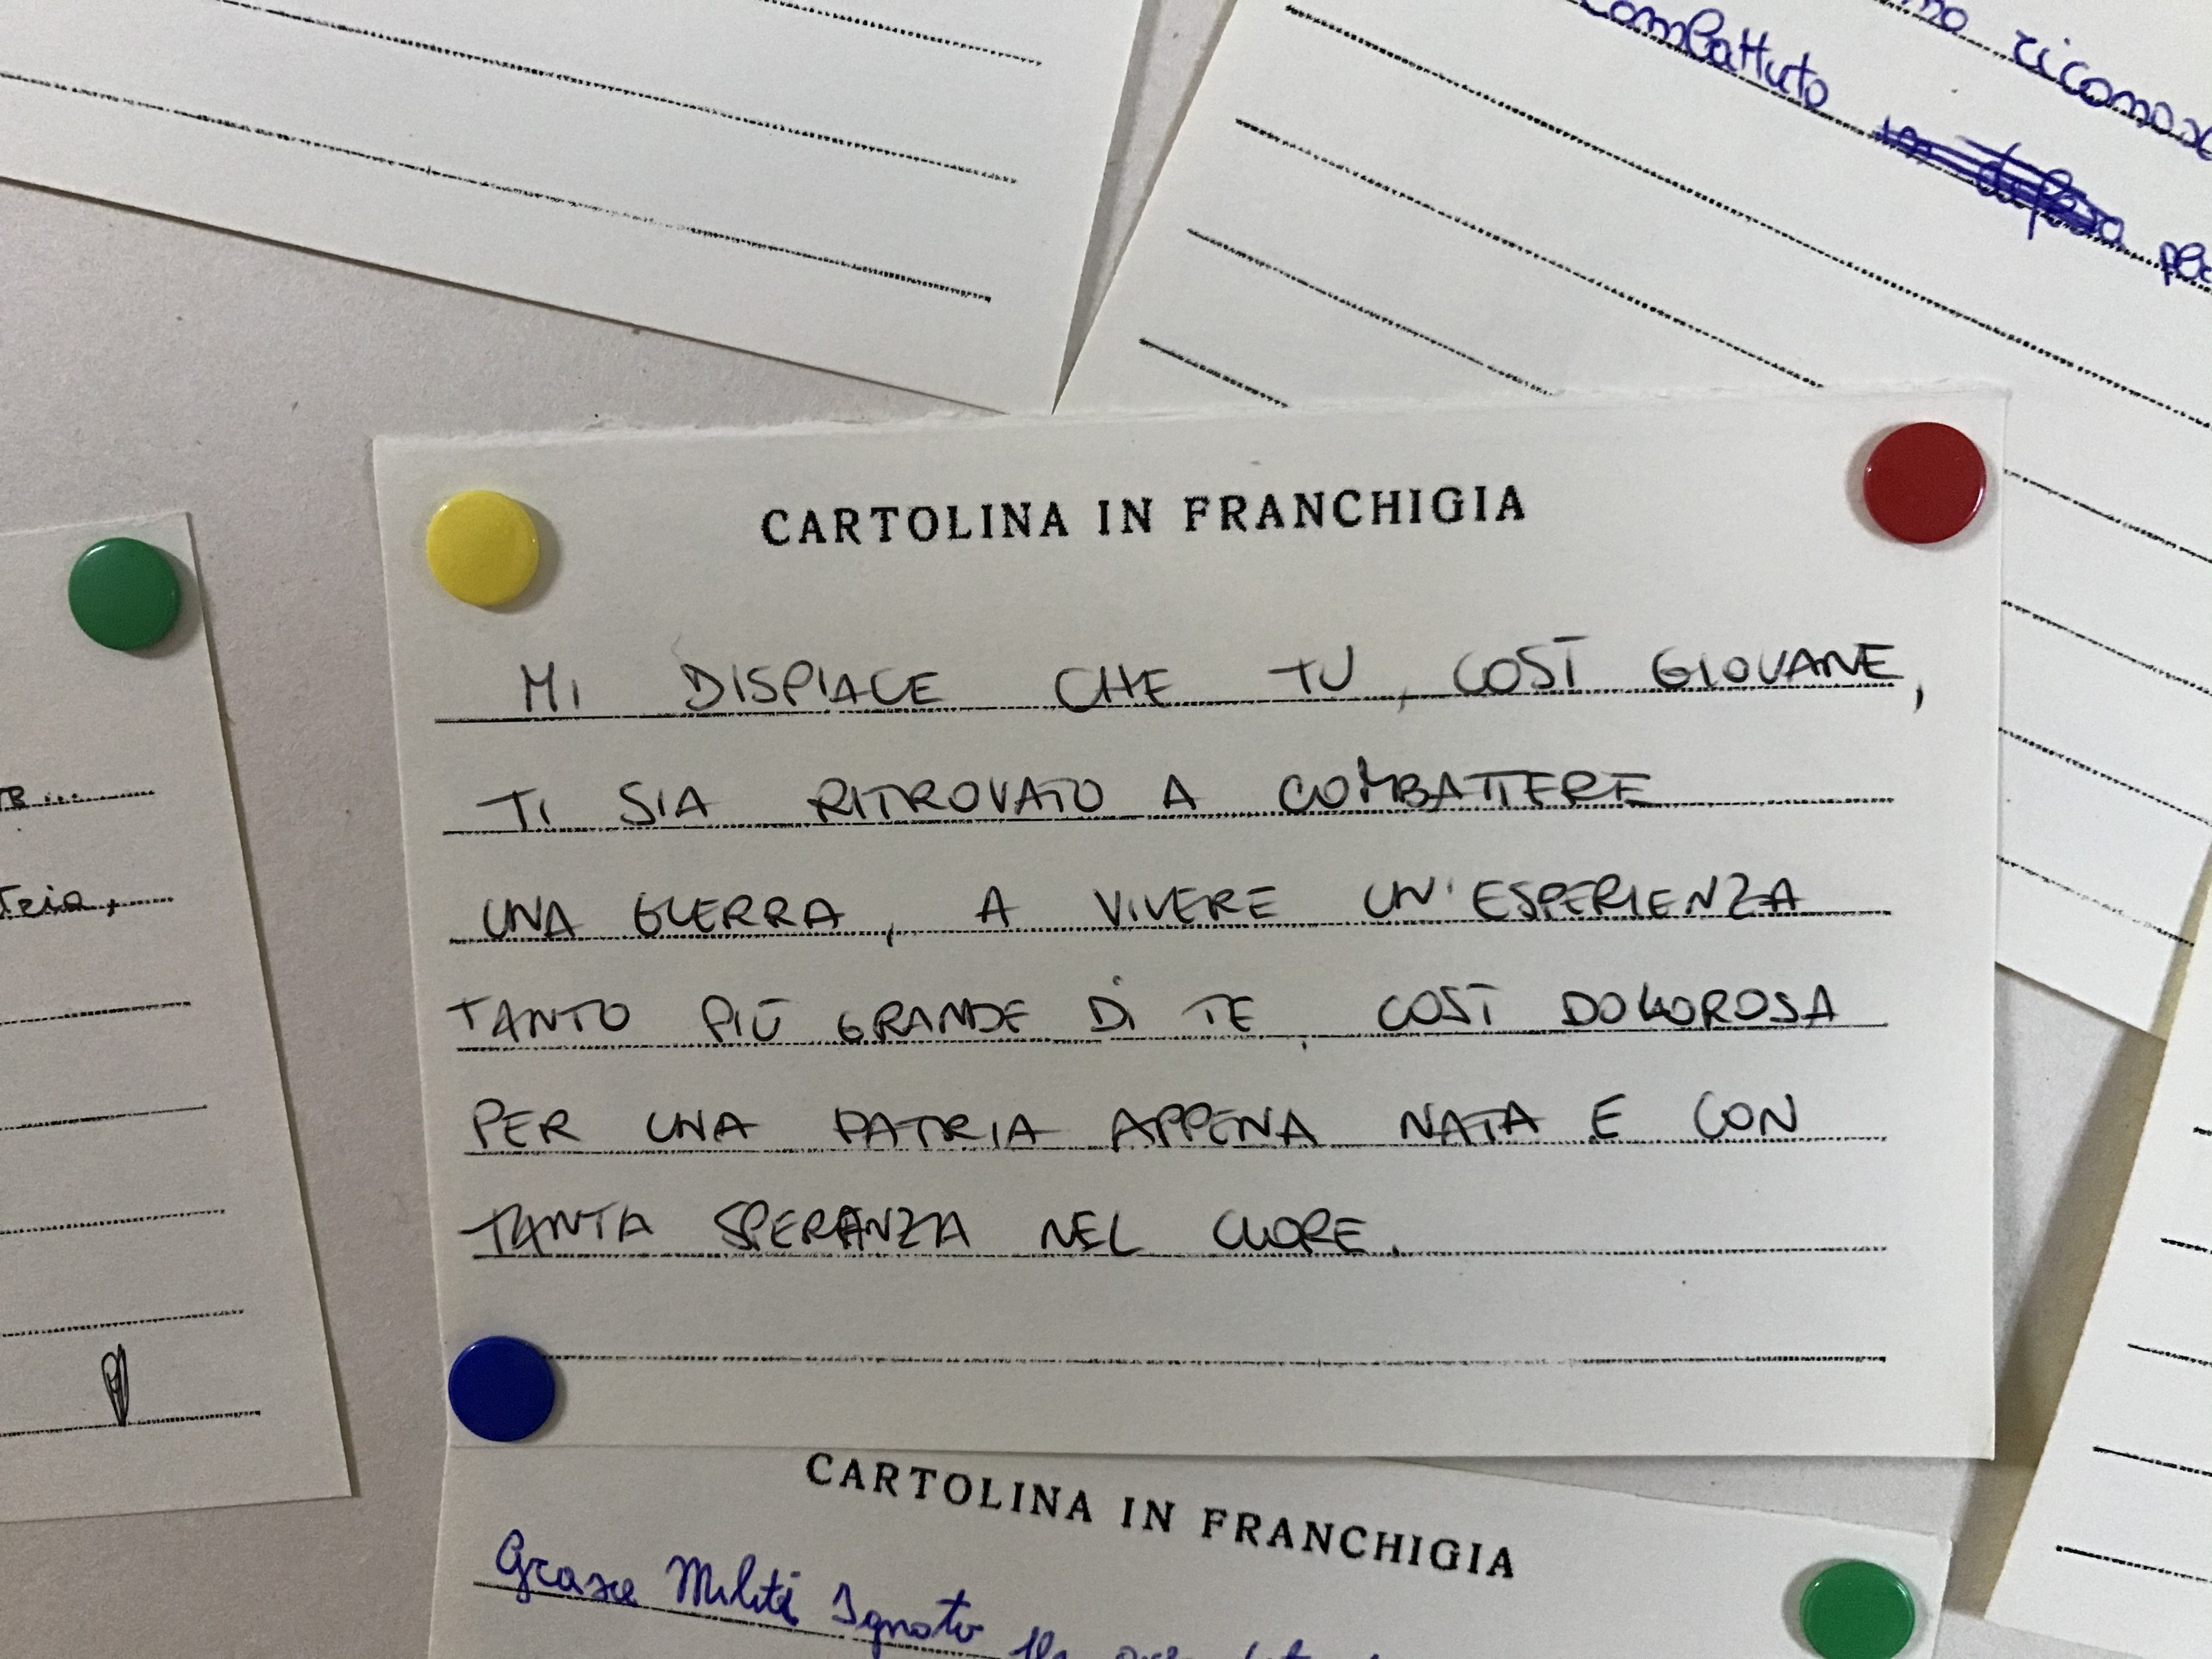 no riconosc
combattuto
CARTOLINA IN FRANCHIGIA
MI DISPIACE CHE TU, COSÌ GIOVANE,
TI SIA RITROVATO A COMBATTERE
UNA GUERRA, A VIVERE UN'ESPERIENZA
TANTO PIÙ GRANDE DI TE, COSÌ DOLOROSA
PER UNA PATRIA APPENA NATA E CON
TANTA SPERANZA NEL CUORE.
CARTOLINA IN FRANCHIGIA
Grazie Milite Ignoto